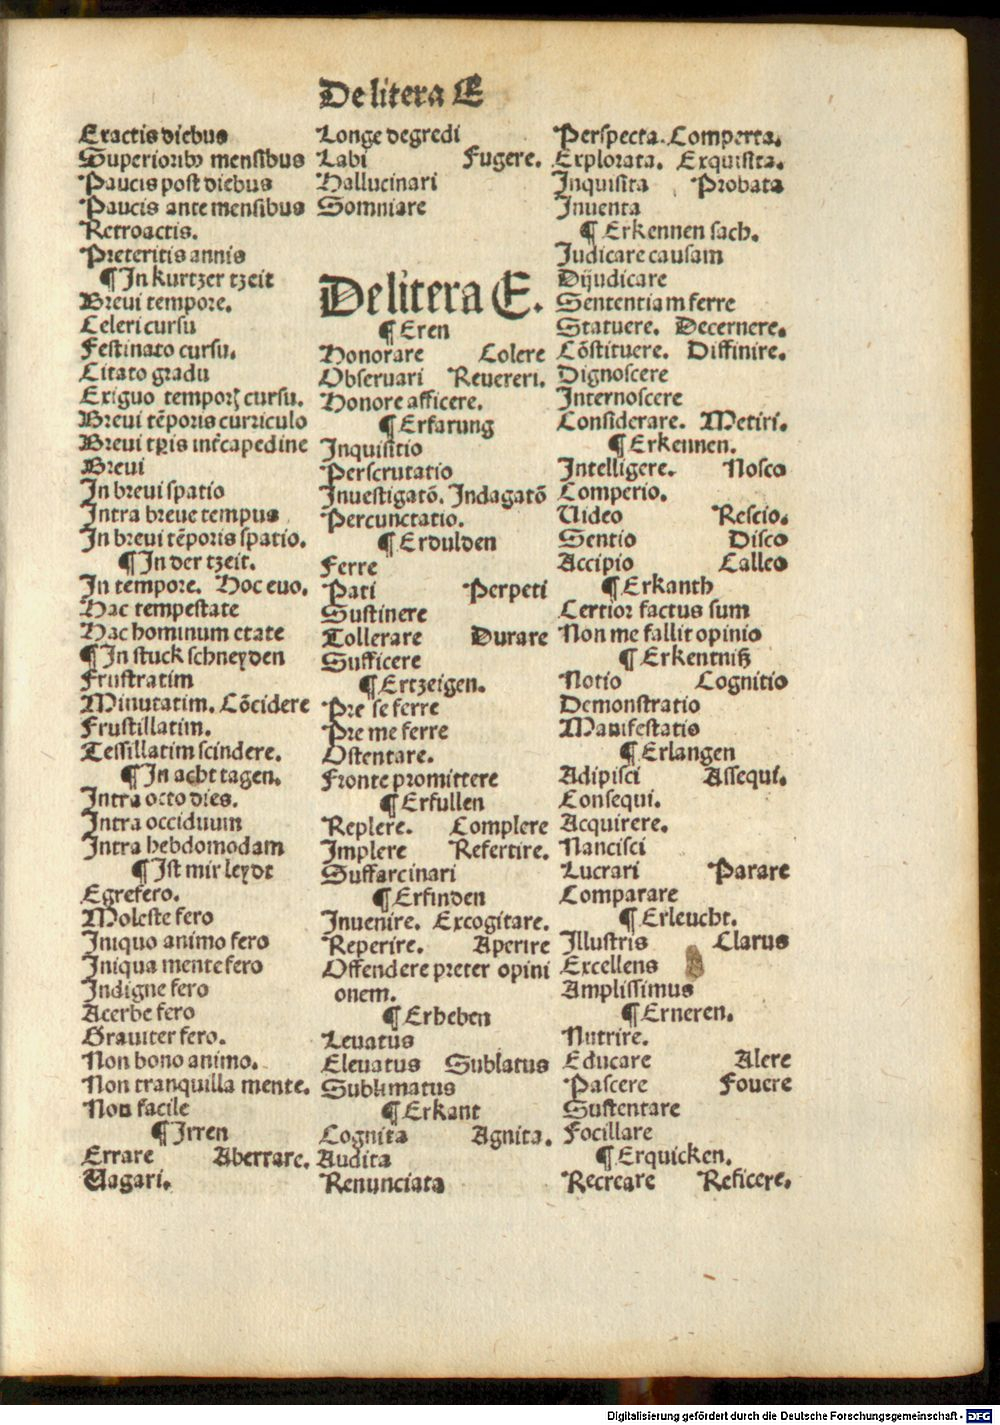 De litera E
Exactis diebus
Superioribꝰ mensibus
Paucis post diebus
Paucis ante mensibus
Retroactis.
Preteritis annis
¶ In kurtzer tzeit
Breui tempore.
Celeri cursu
Festinato cursu.
Citato gradu
Exiguo temporꝭ cursu.
Breui tẽporis curriculo
Breui tꝑis int̃capedine
Breui
In breui spatio
Intra breue tempus
In breui tẽporis spatio.
¶ In der tzeit.
In tempore. Hoc euo.
Hac tempestate
Hac hominum etate
¶ In stuck schneyden
Frustratim
Minutatim. Cõcidere
Frustillatim.
Tessillatim scindere.
¶ In acht tagen.
Intra octo dies.
Intra occiduum
Intra hebdomodam
¶ Ist mir leydt
Egrefero.
Moleste fero
Iniquo animo fero
Iniqua mente fero
Indigne fero
Acerbe fero
Grauiter fero.
Non bono animo.
Non tranquilla mente.
Non facile
¶ Irren
Errare Aberrare.
Uagari.
Longe degredi
Labi Fugere.
Hallucinari
Somniare
De litera E.
¶ Eren
Honorare Colere
Obseruari Reuereri.
Honore afficere.
¶ Erfarung
Inquisitio
Perscrutatio
Inuestigatõ. Indagatõ
Percunctatio.
¶ Erdulden
Ferre
Pati Perpeti
Sustinere
Tollerare Durare
Sufficere
¶ Ertzeigen.
Pre se ferre
Pre me ferre
Ostentare.
Fronte promittere
¶ Erfullen
Replere. Complere
Implere Refertire.
Suffarcinari
¶ Erfinden
Inuenire. Excogitare.
Reperire. Aperire
Offendere preter opini
onem.
¶ Erheben
Leuatus
Eleuatus Sublatus
Sublimatus
¶ Erkant
Cognita Agnita.
Audita
Renunciata
Perspecta. Comperta.
Explorata. Exquisita.
Inquisita Probata
Inuenta
¶ Erkennen sach.
Iudicare causam
Dijudicare
Sententiam ferre
Statuere. Decernere.
Cõstituere. Diffinire.
Dignoscere
Internoscere
Considerare. Metiri.
¶ Erkennen.
Intelligere. Nosco
Comperio.
Uideo Rescio.
Sentio Disco
Accipio Calleo
¶ Erkanth
Certior factus sum
Non me fallit opinio
¶ Erkentniß
Notio Cognitio
Demonstratio
Manifestatio
¶ Erlangen
Adipisci Assequi.
Consequi.
Acquirere.
Nancisci
Lucrari Parare
Comparare
¶ Erleucht.
Illustris Clarus
Excellens
Amplissimus
¶ Erneren.
Nutrire.
Educare Alere
Pascere Fouere
Sustentare
Focillare
¶ Erquicken.
Recreare Reficere.
Digitalisierung gefördert durch die Deutsche Forschungsgemeinschaft - DFG